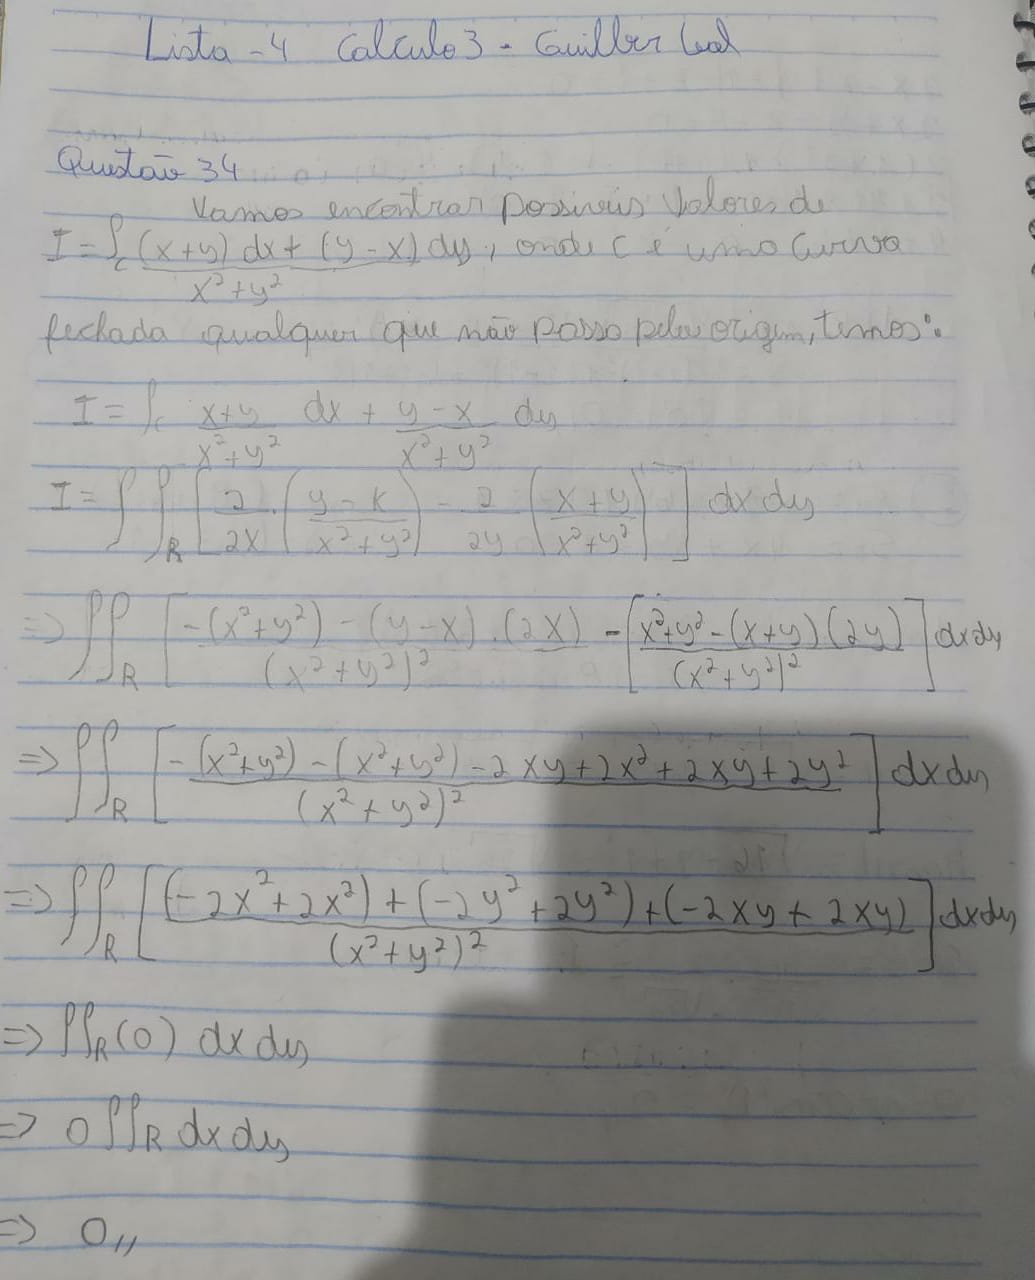 Lista - 4 Calculo 3 - Guilber Leal
Questão 34
Vamos encontrar possiveis Valores de
I = ∫_C (x+y) dx + (y - x) dy / x² + y², onde C é uma Curva
fechada qualquer que não passa pela origem, temos:
I = ∫_C x+y / x² + y² dx + y - x / x² + y² dy
I = ∫∫_R [ ∂/∂x · ( y - x / x² + y² ) - ∂/∂y ( x + y / x² + y² ) ] dx dy
=> ∬_R [ -(x² + y²) - (y - x) . (2x) / (x² + y²)² - [ x² + y² - (x + y)(2y) / (x² + y²)² ] dx dy
=> ∬_R [ -(x² + y²) - (x² + y²) - 2xy + 2x² + 2xy + 2y² / (x² + y²)² ] dx dy
=> ∬_R [ (-2x² + 2x²) + (-2y² + 2y²) + (-2xy + 2xy) / (x² + y²)² ] dx dy
=> ∬_R (0) dx dy
=> 0 ∬_R dx dy
=> 0 //